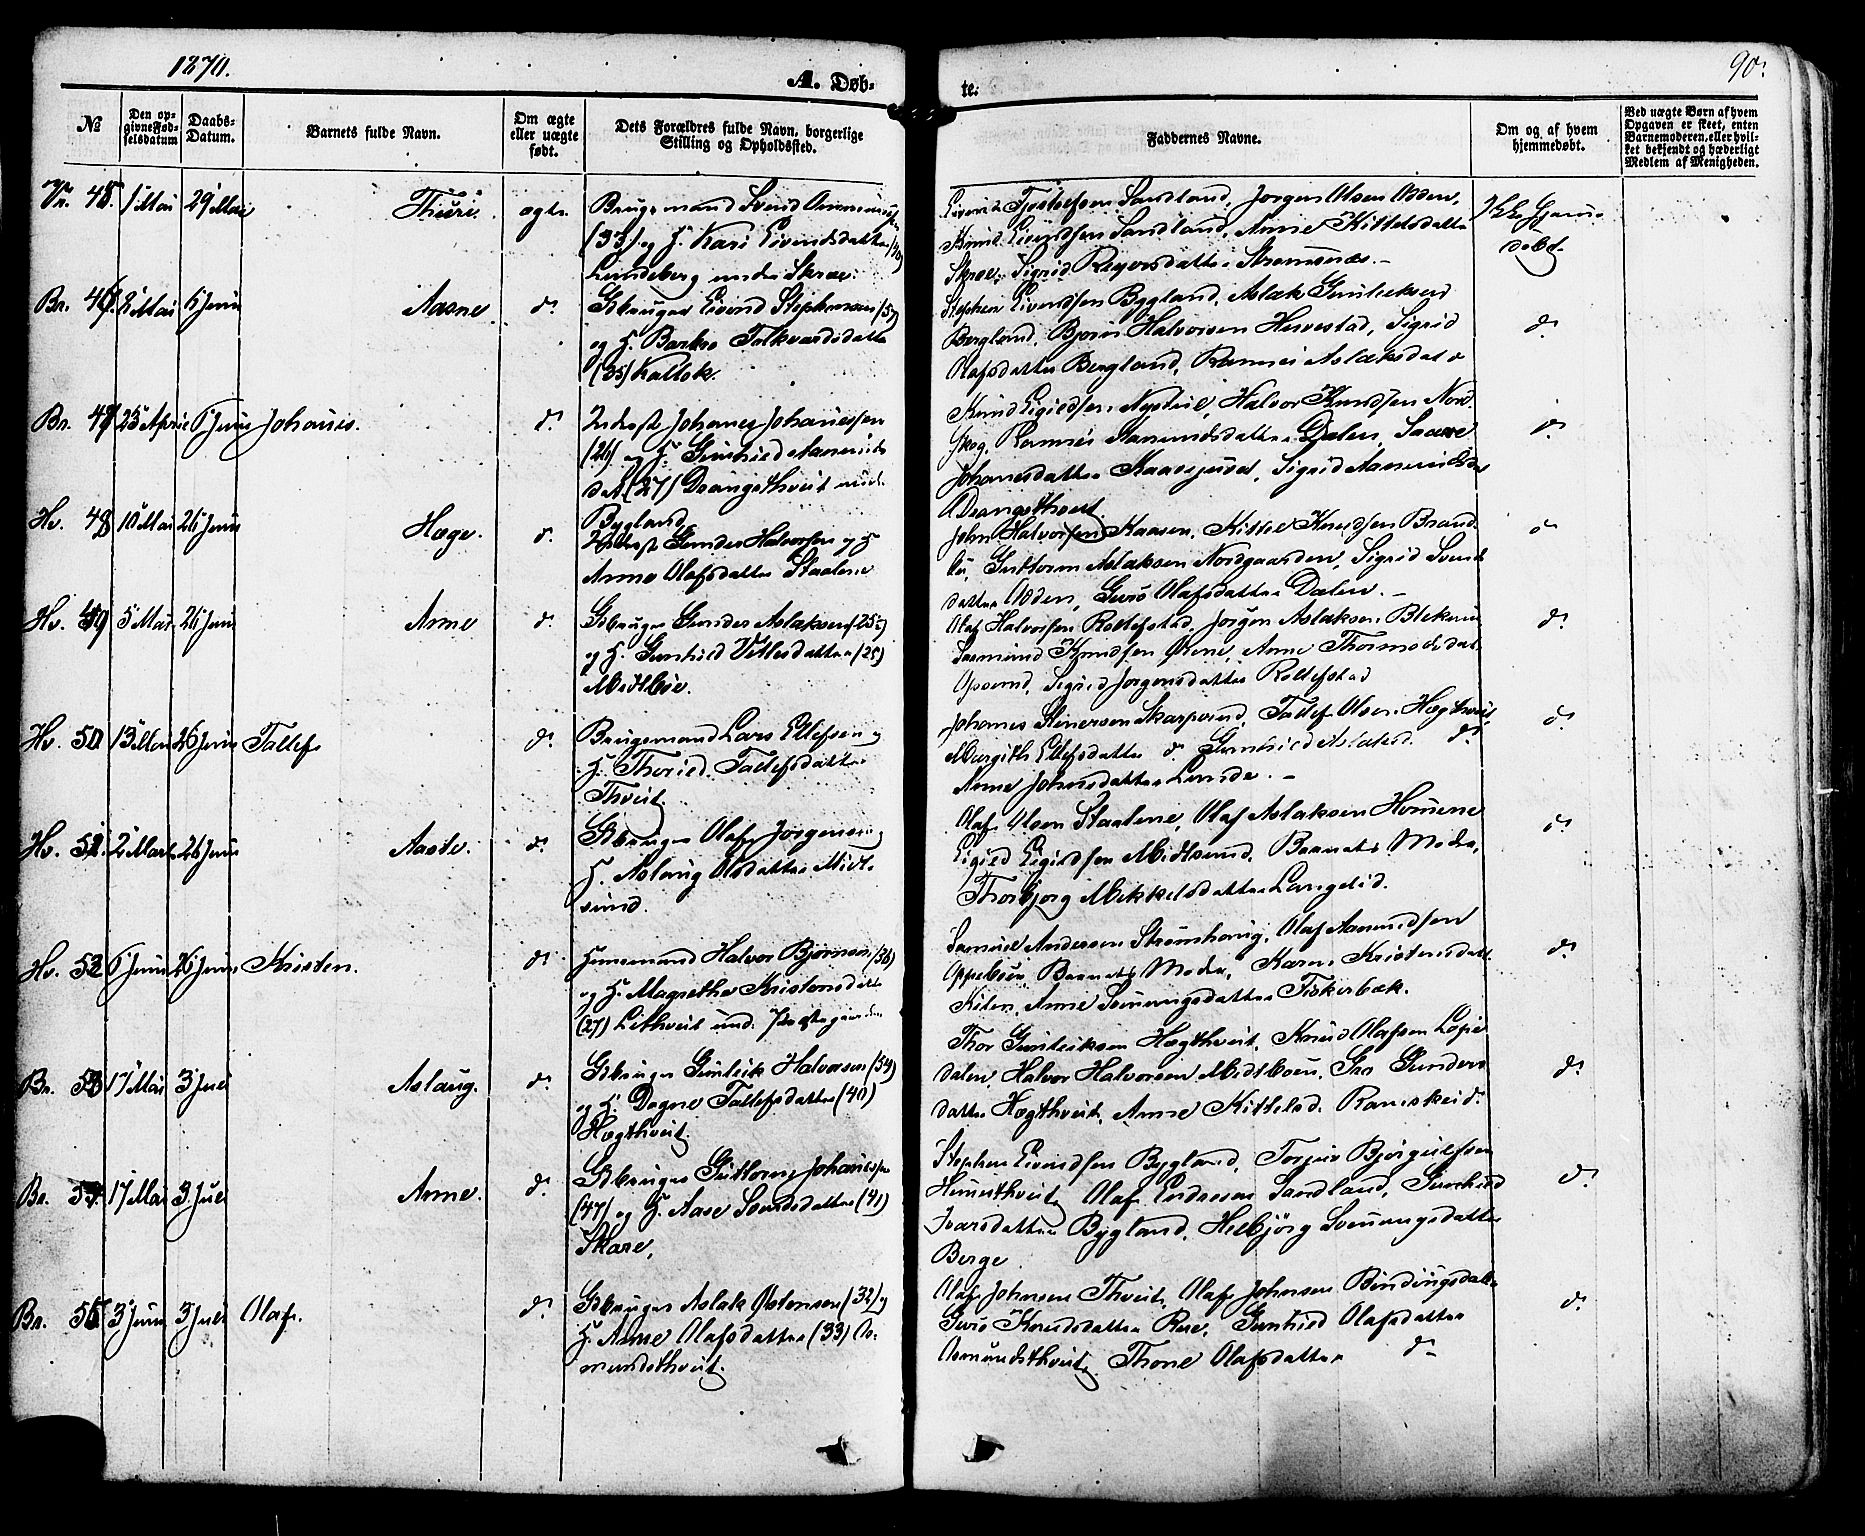 1870.
A. Døb-
te.
90.
№
Den op-
givne Fød-
selsdatum
Daabs-
Datum.
Barnets fulde Navn.
Om ægte
eller uægte
født.
Dets Forældres fulde Navn, borgerlige
Stilling og Opholdssted.
Faddernes Navne.
Om og af hvem
hjemmedøbt.
Ved uægte Børn af hvem
Opgaven er skeet, enten
Barnemoderen, eller hvil-
ket bekjendt og hæderligt
Medlem af Menigheden.
1 Mai 29 Mai Thure. ægte
Brugsmand Svend
(33) og H. Kari Eivindsdatter
Lundeberg under Skræ.
Sandland, Jørgen Olsen Odden,
Knud Eivindsen Sandland, Anne Kittelsdatter
Skræ, Sigrid Strømsnæs. -
Ikke hjemme-
døbt
Br. 46. 8 Mai 6 Juni Aasne. d.
Gbruger Eivind Stephensen (57)
og H. Barbro Folkvardsdatter
(35)
Stephen Eivindsen Bygland, Aslak Gunleiksen
Bergland, Bjørn Halvorsen Hervestad, Sigrid
Olafsdatter Bergland, Ramnei Aslaksdat d
d.
Br. 47 25 April 6 Juni Johanes. d.
Inderst Johanes Johanessen
(26) og H. Gunhild Aanunds
dat. (27) Drangsthveit under
Bygland.
Knud Nystøl, Halvor Knudsen Nord
skog, Ramnei Aanundsdatter Dalen,
Johanesdatter, Sigrid Aanundsdat
Drangsthveit.
d.
Hv. 48 10 Mai 26 Juni Hæge. d.
Inderst Gunder Halvorsen og H
Anne Olafsdatter Staalene
John Halvorsen Kaasen, Kittel Knudsen Brand
Guttorm Aslaksen Nordgaarden, Sigrid Svends
datter Odden, Guro Olafsdatter Dalen. -
d
Hv. 49 5 Mai 26 Juni Anne d.
Gbruger Gunder Aslaksen (25)
og H. Gunhild Vetlesdatter (25)
Midtbøe.
Olaf Halvorsen Roltefstad, Jørgen Aslaksen
Knudsen, Anne Thormodsdat
Sigrid Jørgensdatter Roltefstad
d.
Hv. 50 13 Mai 26 Juni Tallef d.
Brugsmand Lars Ellefsen og
H. Thorild Tallefsdatter
Thveit.
Johanes Skarpsund, Tallef Olsen Hægthveit,
Margith Ellefsdatter d. Gunhild Aslaksd. d.
Anne Johnsdatter Lunde. -
d.
Hv. 51. 2 Marts 26 Juni Aaste. d.
Gbruger Olaf Jørgensen og
H. Aslaug Olsdatter Midt-
sund.
Olaf Olsen Staalene, Olaf Aslaksen
Eigild Eigildsen Midtsund, Barnets Moder,
Thorbjørg Mikkelsdatter Langelid.
d.
Hv. 52 6 Juni 26 Juni Kristen. d.
Huusmand Halvor Bjørnsen (36)
og H. Magrethe Kristensdatter
(27) Lithveit und: Præstegaarden
Samuel Andersen Strømhaug, Olaf Aanundsen
Barnets Moder, Karen Kristensdatter
Kilen, Anne Sveinungsdatter Fiskerbæk.
d.
Br. 53 17 Mai 3 Juli Aslaug. d.
Gbruger Gunleik Halvorsen (54)
og H. Dagne Tallefsdatter (40)
Hægthveit.
Thor Gunleiksen Hægthveit, Knud Olafsen
dalen, Halvor Halvorsen Midtbøen, Gunders
datter Hægthveit, Anne Kittelsd. Raneskeid.
d.
Br. 54 17 Mai 3 Juli Anne. d.
Gbruger Guttorm Johanessen
(47) og H. Aase Svendsdatter (41)
Skare.
Stephen Eivindsen Bygland, Torjuis Bjørgulfsen
Olaf Endresen Sandland, Gunhild
Ivarsdatter Bygland, Helbjørg Sveinungsdatter
Berge.
d.
Br. 55 3 Juni 3 Juli Olaf. d.
Gbruger Aslak Østensen (32) og
H. Anne Olafsdatter (33) As-
mundsthveit.
Olaf Johnsen Thveit, Olaf Johnsen
Guro Knudsdatter, Gunhild Olafsdatter
Asmundsthveit, Thone Olafsdatter d.
d.